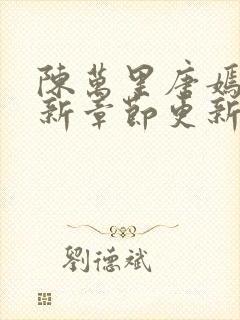 陳萬里唐嫣
新章節更新
劉德斌